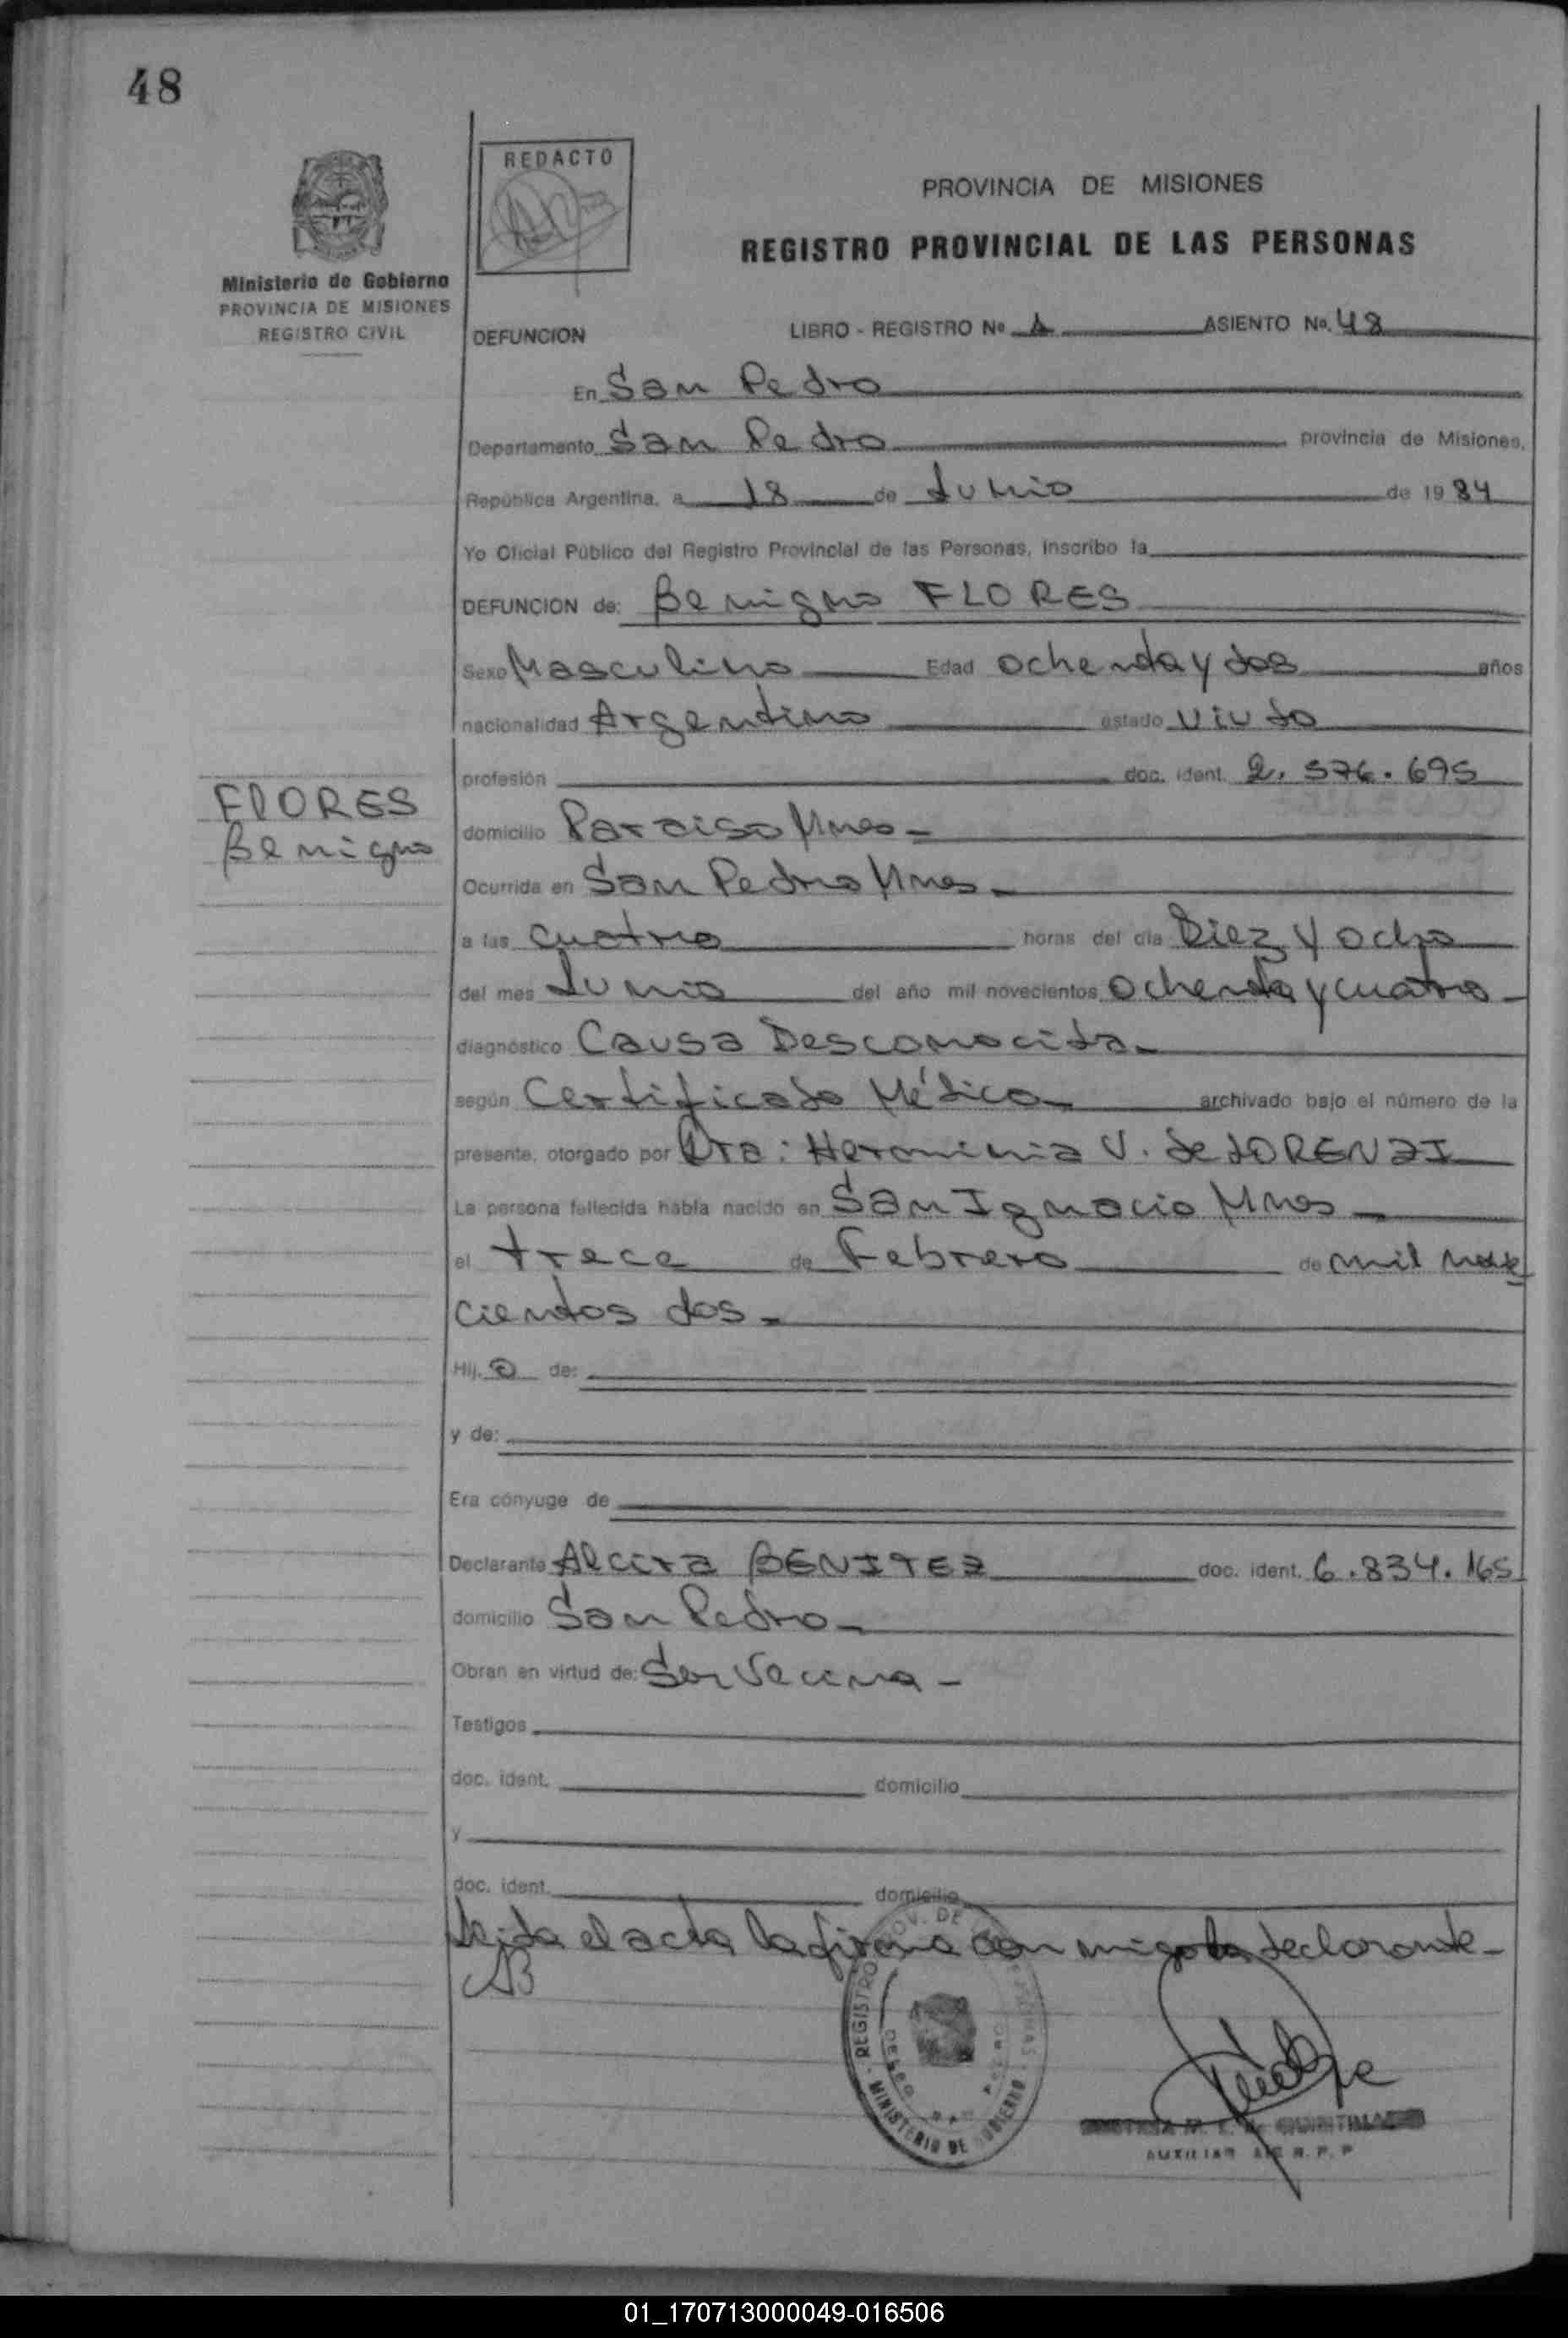 48
REDACTO
Ministerio de Gobierno
PROVINCIA DE MISIONES
REGISTRO CIVIL
PROVINCIA DE MISIONES
REGISTRO PROVINCIAL DE LAS PERSONAS
DEFUNCION LIBRO - REGISTRO No ASIENTO No. 48
En San Pedro
Departamento San Pedro provincia de Misiones,
República Argentina, a 18 de Junio de 1984
Yo Oficial Público del Registro Provincial de las Personas, inscribo la
DEFUNCION de: Benigno FLORES
Sexo Masculino Edad Ochenta y dos años
nacionalidad Argentino estado Viudo
profesión doc. ident. 2.576.695
FLORES
Benigno
domicilio Paraiso Mnes-
Ocurrida en San Pedro Mnes-
a las cuatro horas del día Diez y ocho
del mes Junio del año mil novecientos Ochenta y cuatro-
diagnóstico Causa Desconocida-
según Certificado Médico- archivado bajo el número de la
presente, otorgado por Dra: Herminia V. de LORENZI
La persona fallecida había nacido en San Ignacio Mnes-
el trece de Febrero de mil nove
cientos dos-
Hij.o de:
y de:
Era cónyuge de
Declarante Alcira BENITEZ doc. ident. 6.834.165
domicilio San Pedro-
Obran en virtud de: Ser Vecina-
Testigos
doc. ident. domicilio
y
doc. ident. domicilio
Leida el acta la firma con migo la declarante-
AB
REGISTRO PROV. DE LAS PERSONAS
MINISTERIO DE GOBIERNO
AUXILIAR R. P. P
01_170713000049-016506